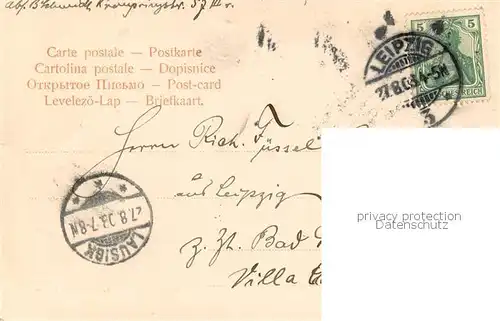 Abs. B. Schmidt, Kronprinzstr. 57 III r.
Carte postale — Postkarte
Cartolina postale — Dopisnice
Открытое Письмо — Post-card
Levelező-Lap — Briefkaart.
5 5
LEIPZIG
27.8.03. 4-5N.
3
DEUTSCHES REICH
Herrn Rich. Füssel
aus Leipzig
z. Zt. Bad
Villa
27.8.03.7-8N
LAUSIGK
privacy protection
Datenschutz